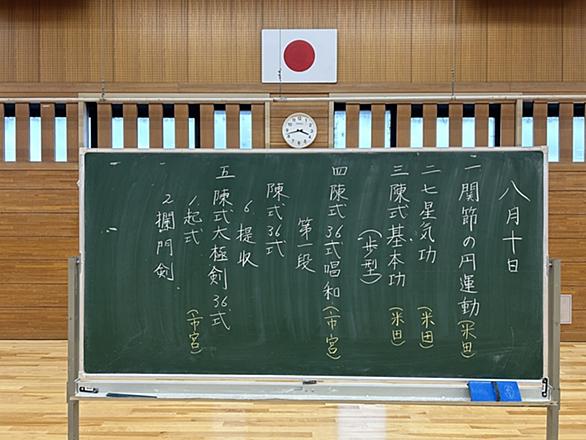 八月十日
一 関節の円運動(米田)
二 七星気功(米田)
三 陳式基本功(米田)
(歩型)
四 陳式36式唱和(市宮)
第一段
陳式36式
6. 提収
五 陳式太極剣36式
1. 起式(市宮)
2. 攔門剣